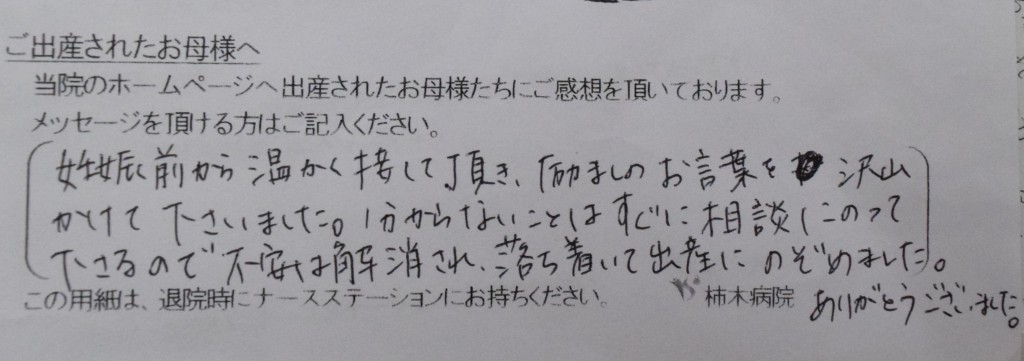 ご出産されたお母様へ
当院のホームページへ出産されたお母様たちにご感想を頂いております。
メッセージを頂ける方はご記入ください。
妊娠前から温かく接して頂き、励ましのお言葉を沢山
かけて下さいました。分からないことはすぐに相談にのって
下さるので不安は解消され、落ち着いて出産にのぞめました。
この用紙は、退院時にナースステーションにお持ちください。 柿木病院 ありがとうございました。